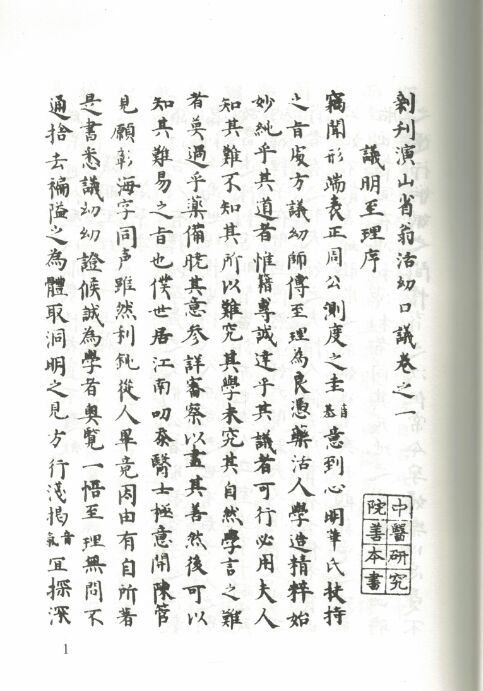 新刊演山省翁活幼口議卷之一
議明至理序
竊聞形端表正周公測度之圭音基意到心明華氏扶持
之旨處方議幼師傳至理為良憑藥活人學造精粹始
妙純乎其道者惟籍專誠達乎其議者可行必用夫人
知其難不知其所以難究其學未究其自然學言之難
者莫過乎藥備脘其意參詳審察以盡其善然後可以
知其難易之旨也僕世居江南叨忝醫士極意開陳管
見願彰海字同声雖然利鈍從人畢竟因由有自所著
是書悉議幼幼證候誠為學者輿覽一悟至理無問不
通捨去褊隘之為體取洞明之見方行淺揭音氣宜探深
中醫研究
院善本書
1